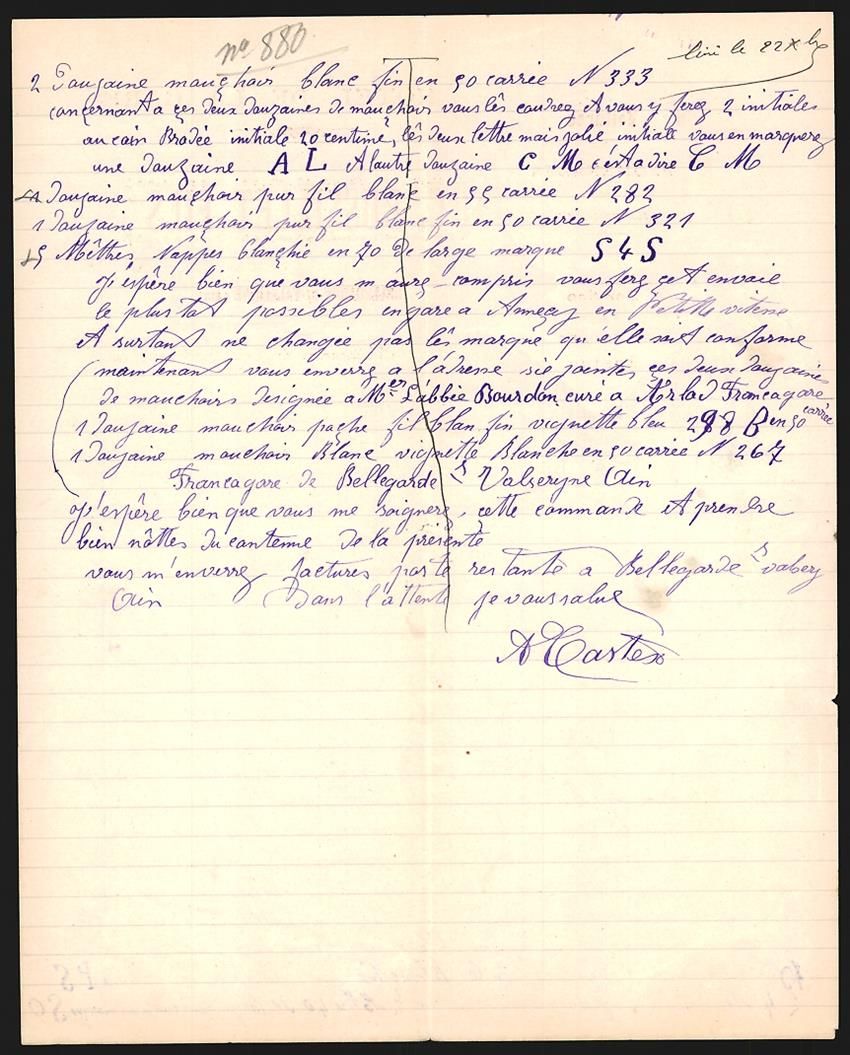 no 880
livré le 22 Xbre
2 Douzaine mouchoir blanc fin en 50 carrée N 333
concernant a ces deux douzaines de mouchoir vous lês coudrez et vous y ferez 2 initiales
au coin Brodée initiale 20 centime, lês deux lettre mais jolie initiale vous en marquerez
une douzaine A L et l autre douzaine C M c'ést a dire C M
1 Douzaine mouchoir pur fil blanc en 55 carrée N 282
1 Douzaine mouchoir pur fil blanc fin en 50 carrée N 321
15 Mêttres Nappes blanchie en 70 de large marque S4S
J'éspêre bien que vous m aurez compris vous ferez çet envoie
le plus tot possibles en gare a Anneçy en Petitte vitesse
et surtout ne changée pas lês marque qu'elle soit conforme
maintenant vous enverrez a l'adresse sie jointes ces deux douzaines
de mouchoirs designée a Mer L'abbée Bourdon curé a Arlod Franco gare
1 douzaine mouchoir poche fil blan fin vignette bleu 298 B en 50 carrée
1 Douzaine mouchoir Blanc vignette Blanche en 50 carrée N 267
Franco gare de Bellegarde s Valseryne Ain
J'éspêre bien que vous me soignere, cette commande et prendre
bien nôttes du contenue de la présente
vous m'enverrez factures poste restante a Bellegarde s valsery
Ain Dans l'attente je vous salue
A Castex